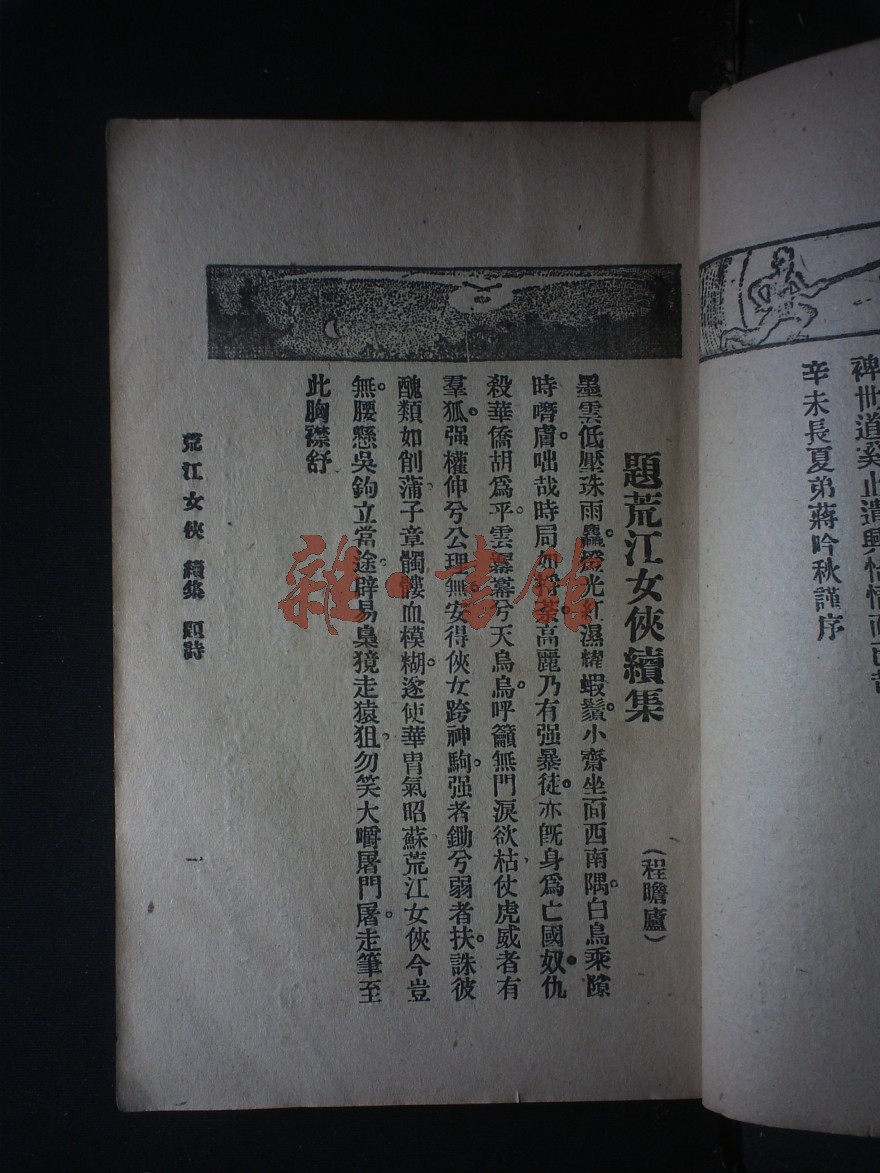 裨卋道奚止遣興怡情而已
辛未長夏弟蔣吟秋謹序
題荒江女俠續集
(程瞻廬)
墨雲低壓珠雨麤。燈光紅濕耀蝦鬚。小齋坐面西南隅。白鳥乘隙
時噆膚。咄哉時局如捋荼。高麗乃有强暴徒。亦旣身爲亡國奴。仇
殺華僑胡爲乎。雲冪冪兮天烏烏。呼籲無門淚欲枯仗虎威者有
羣狐。强權伸兮公理無。安得俠女跨神駒。强者鋤兮弱者扶。誅彼
醜類如削蒲。子章髑髏血模糊。遂使華冑氣昭蘇荒江女俠今豈
無。腰懸吳鉤立當途。辟易梟獍走猿狙。勿笑大嚼屠門屠。走筆至
此胸襟舒
荒江女俠 續集 題詩
一
雜·書館